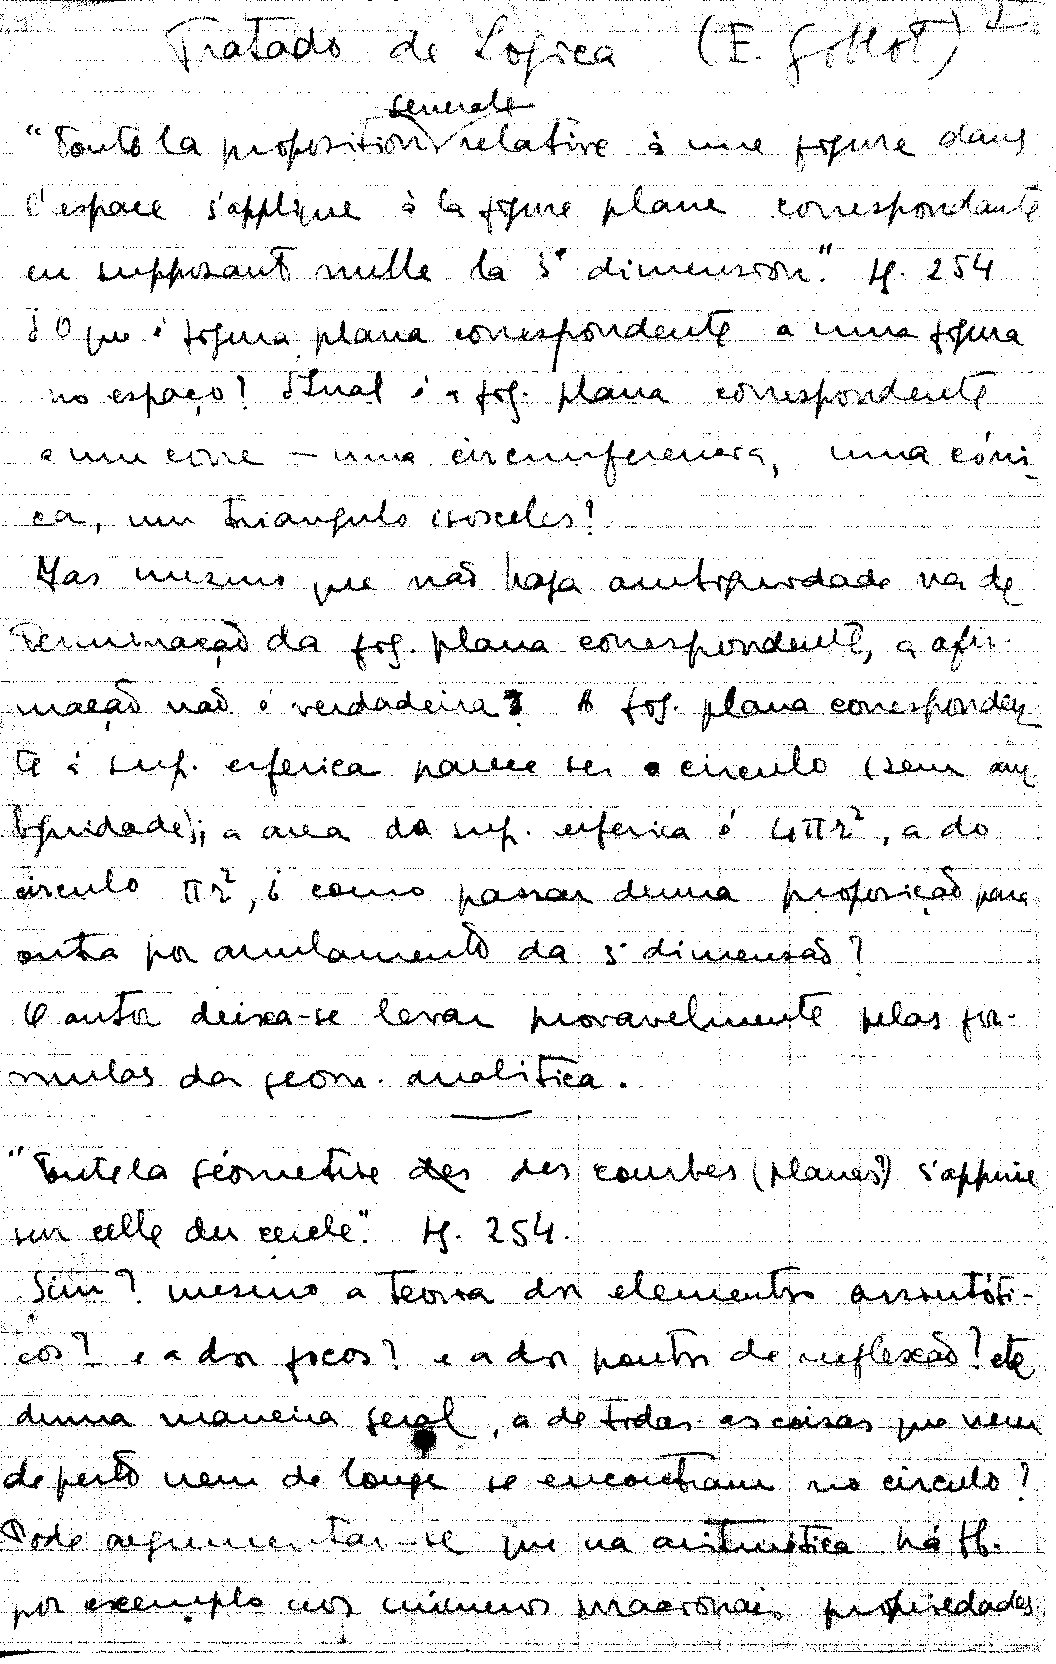 Tratado de Logica (E. Goblot)
generale
"Toute la proposition relative à une figure dans
l'espace s'applique à la figure plane correspondante
en supposant nulle la 3ª dimension." pg. 254
¿O que é figura plana correspondente a uma figura
no espaço? ¿Qual é a fig. plana correspondente
a um cone – uma circumferencia, uma cóni-
ca, um triangulo isosceles?
Mas mesmo que não haja ambiguidade na de
terminação da fig. plana correspondente, a afir-
mação não é verdadeira? A fig. plana corresponden
te á sup. esferica parece ser o circulo (sem am
biguidade); a area da sup. esferica é 4πr², a do
circulo πr², ¿como passar duma proposição para
outra por anulamento da 3ª dimensão?
O autor deixa-se levar provavelmente pelas for-
mulas da geom. analitica.
"Toute la géometrie des des courbes (planes?) s'appuie
sur celle du cercle." pg. 254.
Sim? mesmo a teoria dos elementos assintóti-
cos? e a dos focos? e a dos pontos de inflexão? etc
duma maneira geral, a de todas as coisas que nem
de perto nem de longe se encontram no circulo?
Pode argumentar-se que na aritmética há tb.
por exemplo nos números irracionais propriedades